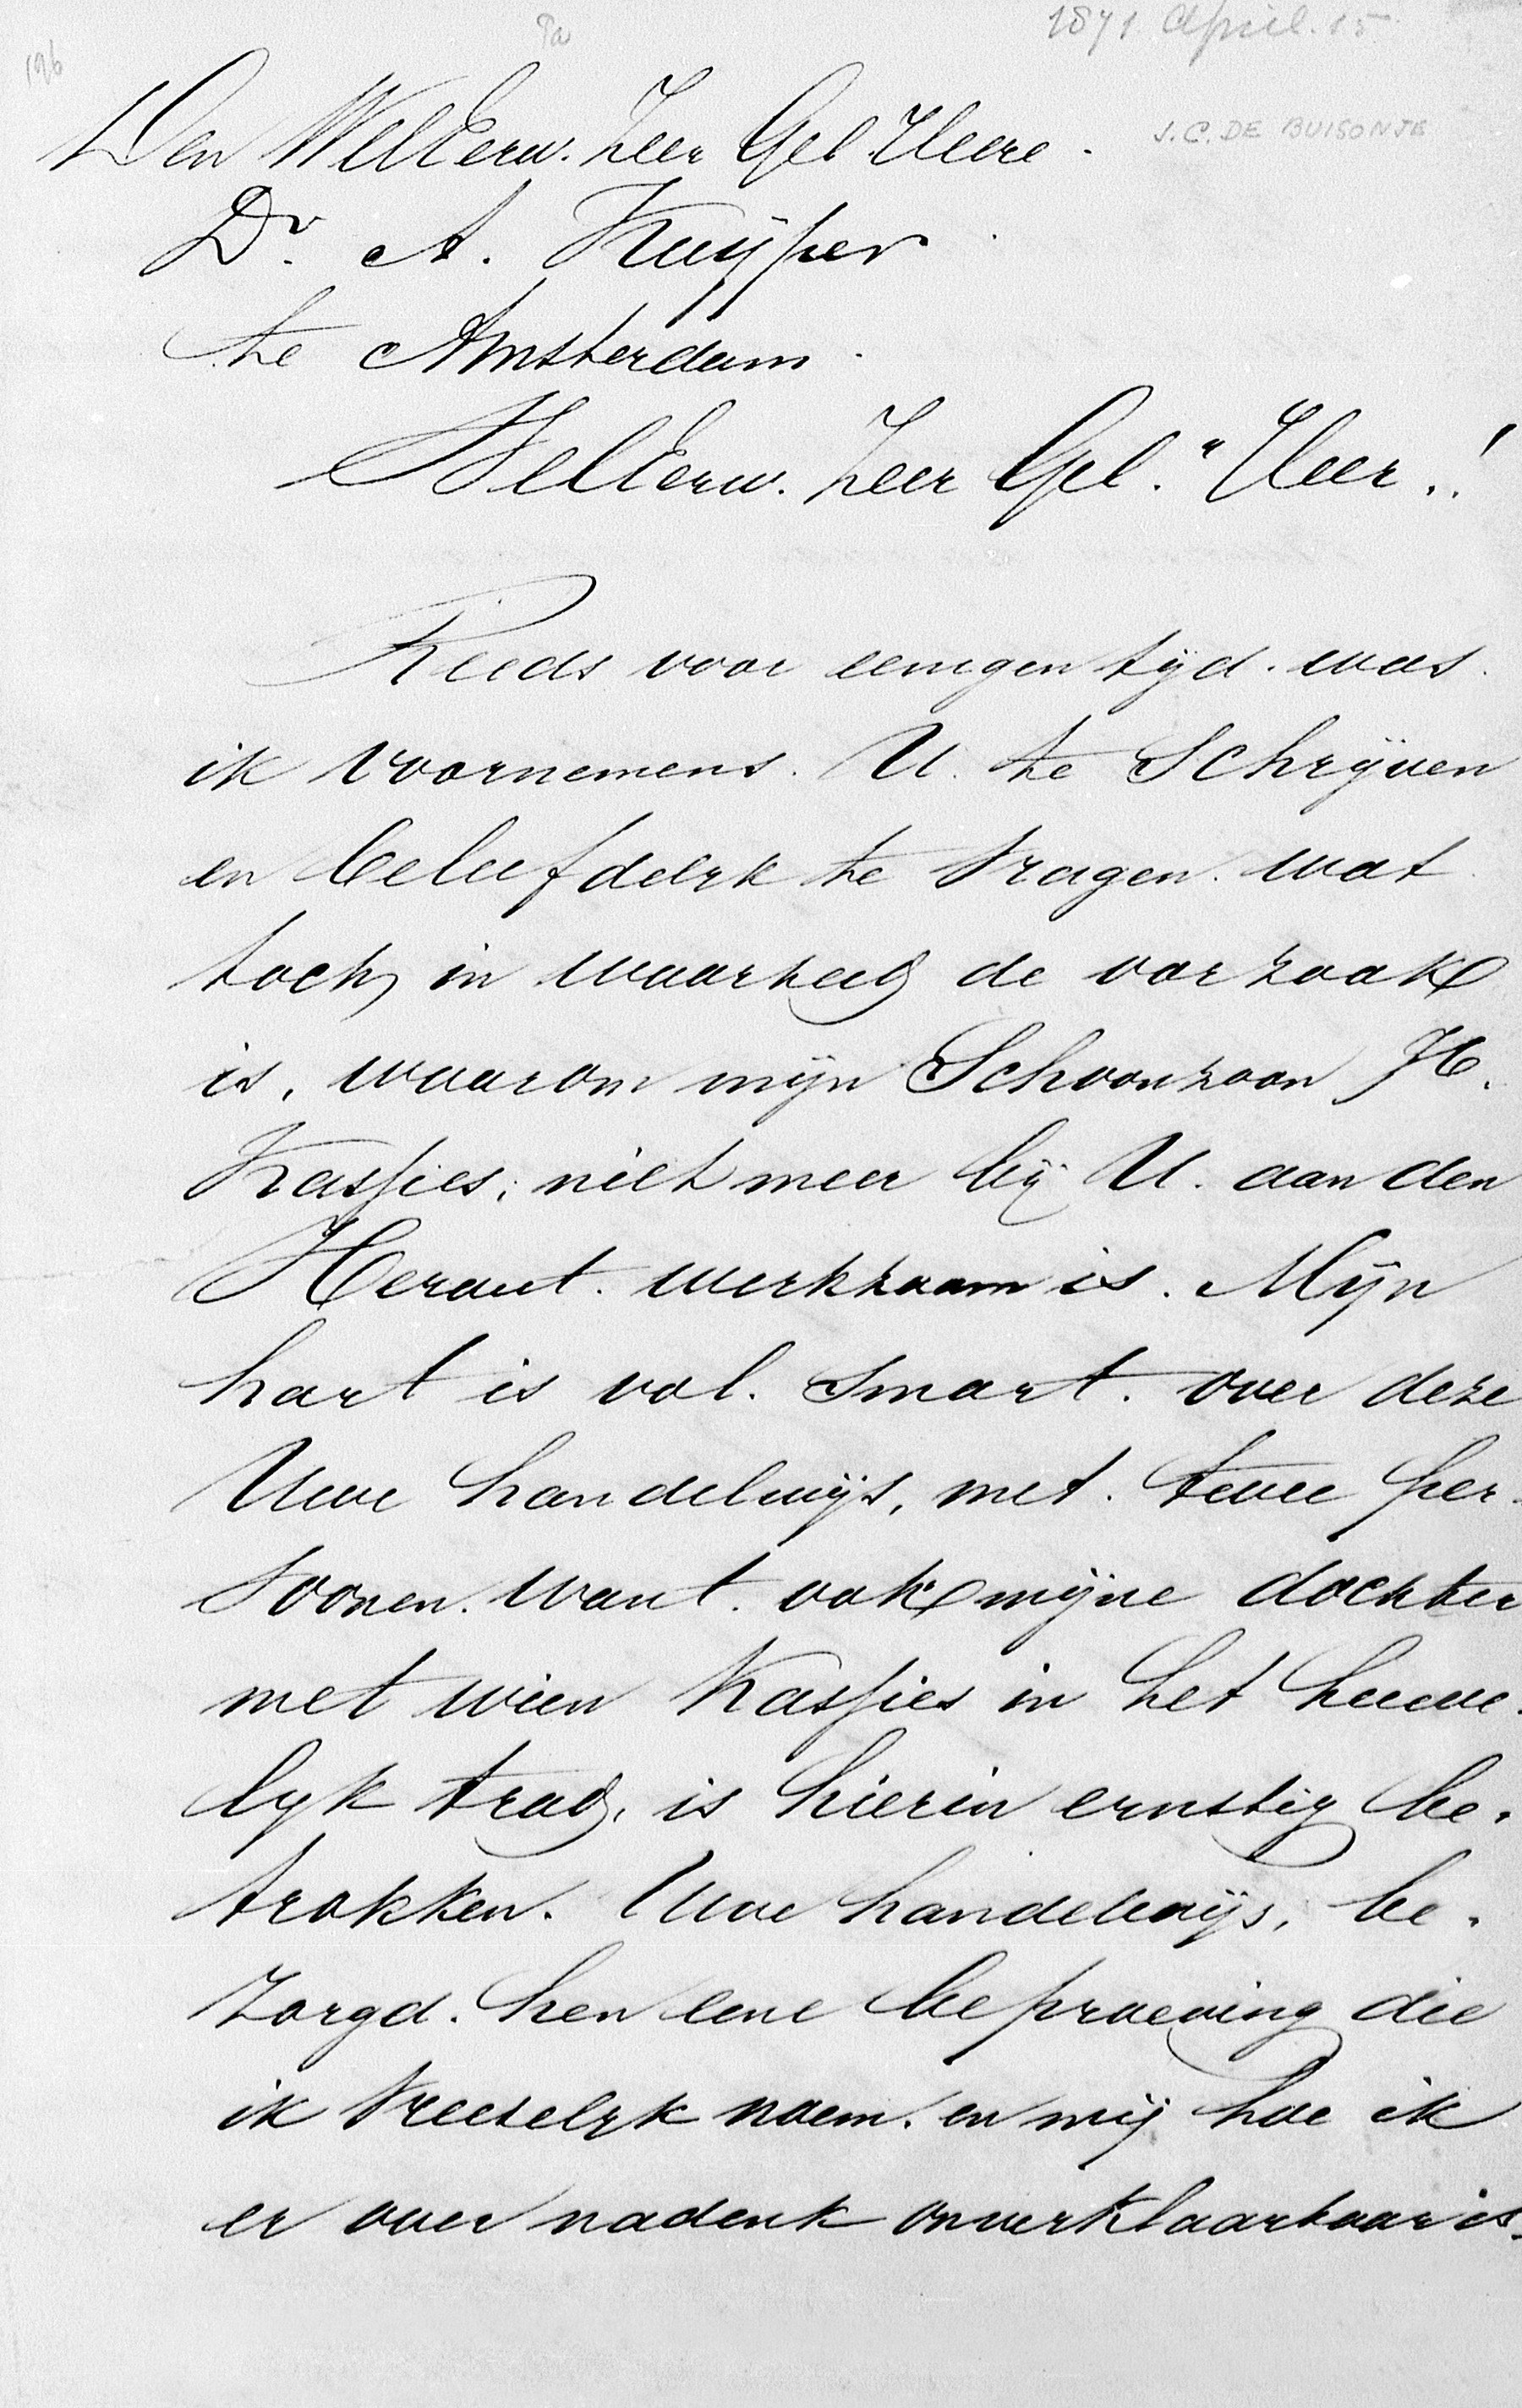 1871 April. 15
196
Pa
J.C. DE BUISONJE
Den WelEerw. Zeer Gel Heere.
Dr. A. Kuÿper
te Amsterdam.
WelEerw. Zeer Gel. Heer!
Reeds voor eenigen tÿd. was.
ik voornemens. U. te Schrÿven
en beleefdelyk te vragen. wat
toch, in waarheid de oorzaak
is, waarom mÿn Schoonzoon H.
Kaspies, niet meer bÿ U. aan den
Heraut. werkzaam is. Mÿn
hart is vol. smart. over deze
Uwe handelwÿs, met. twee per-
soonen. want. ook mÿne dochter
met wien Kaspies in het huwe-
lyk trad, is hierin ernstig be-
trokken. Uwe handelwÿs, be-
zorgd. hen eene beproeving die
ik vreeselyk noem. en mÿ hoe ik
er over nadenk onverklaarbaar is.